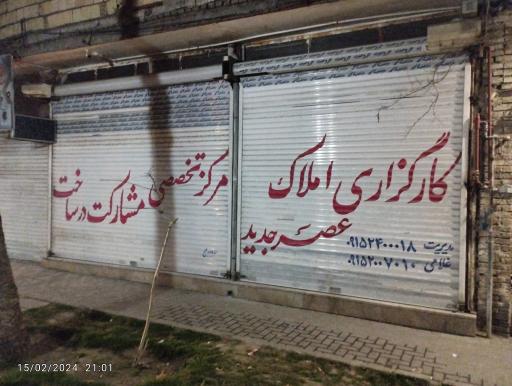 کارگزاری املاک
عصر جدید
مدیریت ۰۹۱۵۲۴۰۰۰۱۸
غلامی ۰۹۱۵۲۰۰۷۰۱۰
مرکز تخصصی
مشارکت در ساخت
15/02/2024 21:01